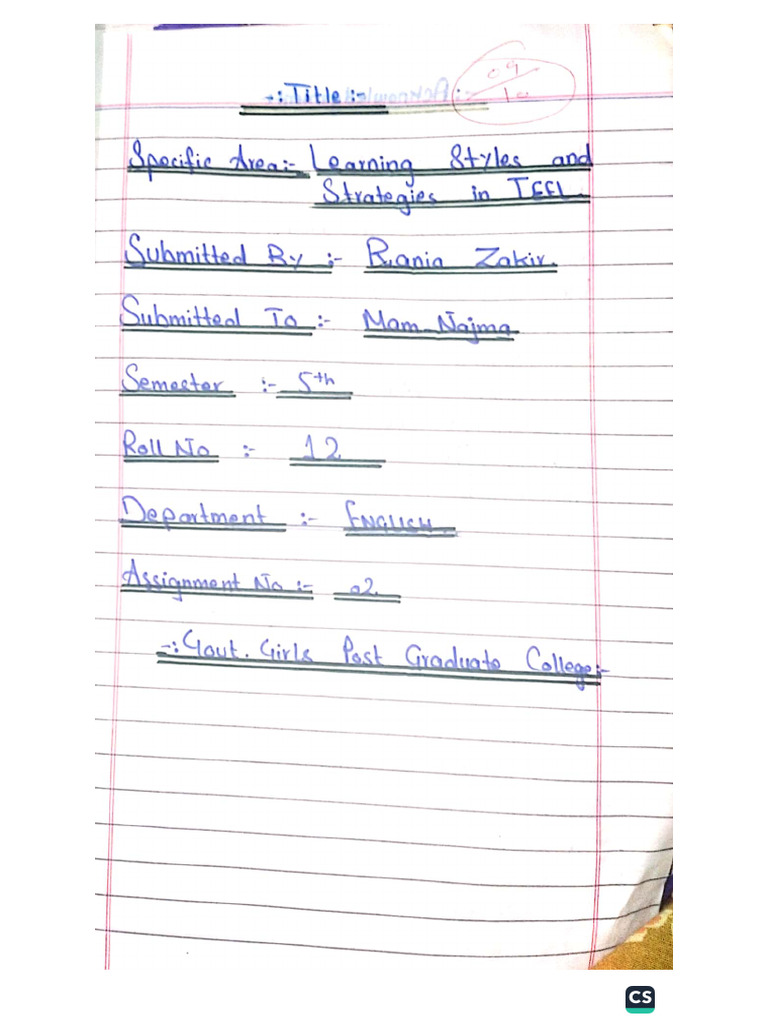 09
10
-: Title :-
Specific Area:- Learning Styles and
Strategies in TEFL.
Submitted By :- Rania Zakir.
Submitted To :- Mam Najma
Semester :- 5th
Roll No :- 12
Department :- ENGLISH.
Assignment No :- 02
-: Gout. Girls Post Graduate College:-
CS